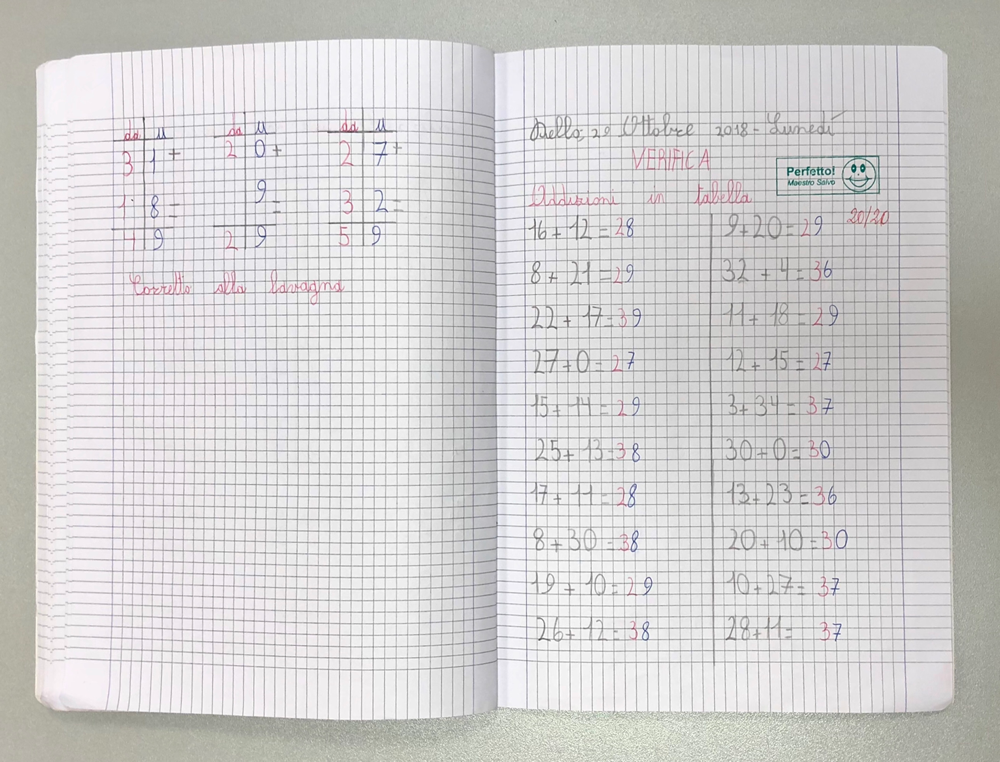 da u
3 1 +
1 8 =
4 9
da u
2 0 +
9 =
2 9
da u
2 7 +
3 2 =
5 9
Corretto alla lavagna
Ottobre 2018 - Lunedì
VERIFICA
Perfetto!
Maestro Salvo
Addizioni in tabella
20/20
16 + 12 = 28
8 + 21 = 29
22 + 17 = 39
27 + 0 = 27
15 + 14 = 29
25 + 13 = 38
17 + 11 = 28
8 + 30 = 38
19 + 10 = 29
26 + 12 = 38
9 + 20 = 29
32 + 4 = 36
11 + 18 = 29
12 + 15 = 27
3 + 34 = 37
30 + 0 = 30
13 + 23 = 36
20 + 10 = 30
10 + 27 = 37
28 + 11 = 37